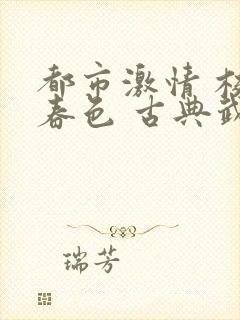 都市激情
春色 古典
瑞芳